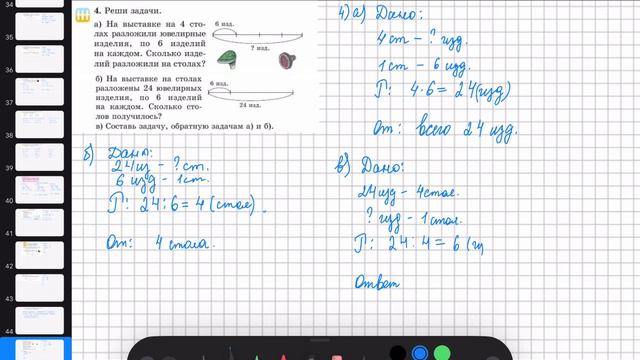 4. Реши задачи.
а) На выставке на 4 сто-
лах разложили ювелирные
изделия, по 6 изделий
на каждом. Сколько изде-
лий разложили на столах?
6 изд.
? изд.
б) На выставке на столах
разложены 24 ювелирных
изделия, по 6 изделий
на каждом. Сколько сто-
лов получилось?
6 изд.
24 изд.
в) Составь задачу, обратную задачам а) и б).
4) а) Дано:
4 ст - ? изд.
1 ст - 6 изд.
Г: 4·6 = 24(изд)
От: всего 24 изд.
б) Дано:
24 из - ? ст.
6 изд - 1 ст.
Г: 24 : 6 = 4 (стол) .
От: 4 стола.
в) Дано:
24 изд - 4 стол.
? изд - 1 стол.
Г: 24 : 4 = 6 (из
Ответ
34
35
36
37
38
39
40
41
42
43
44